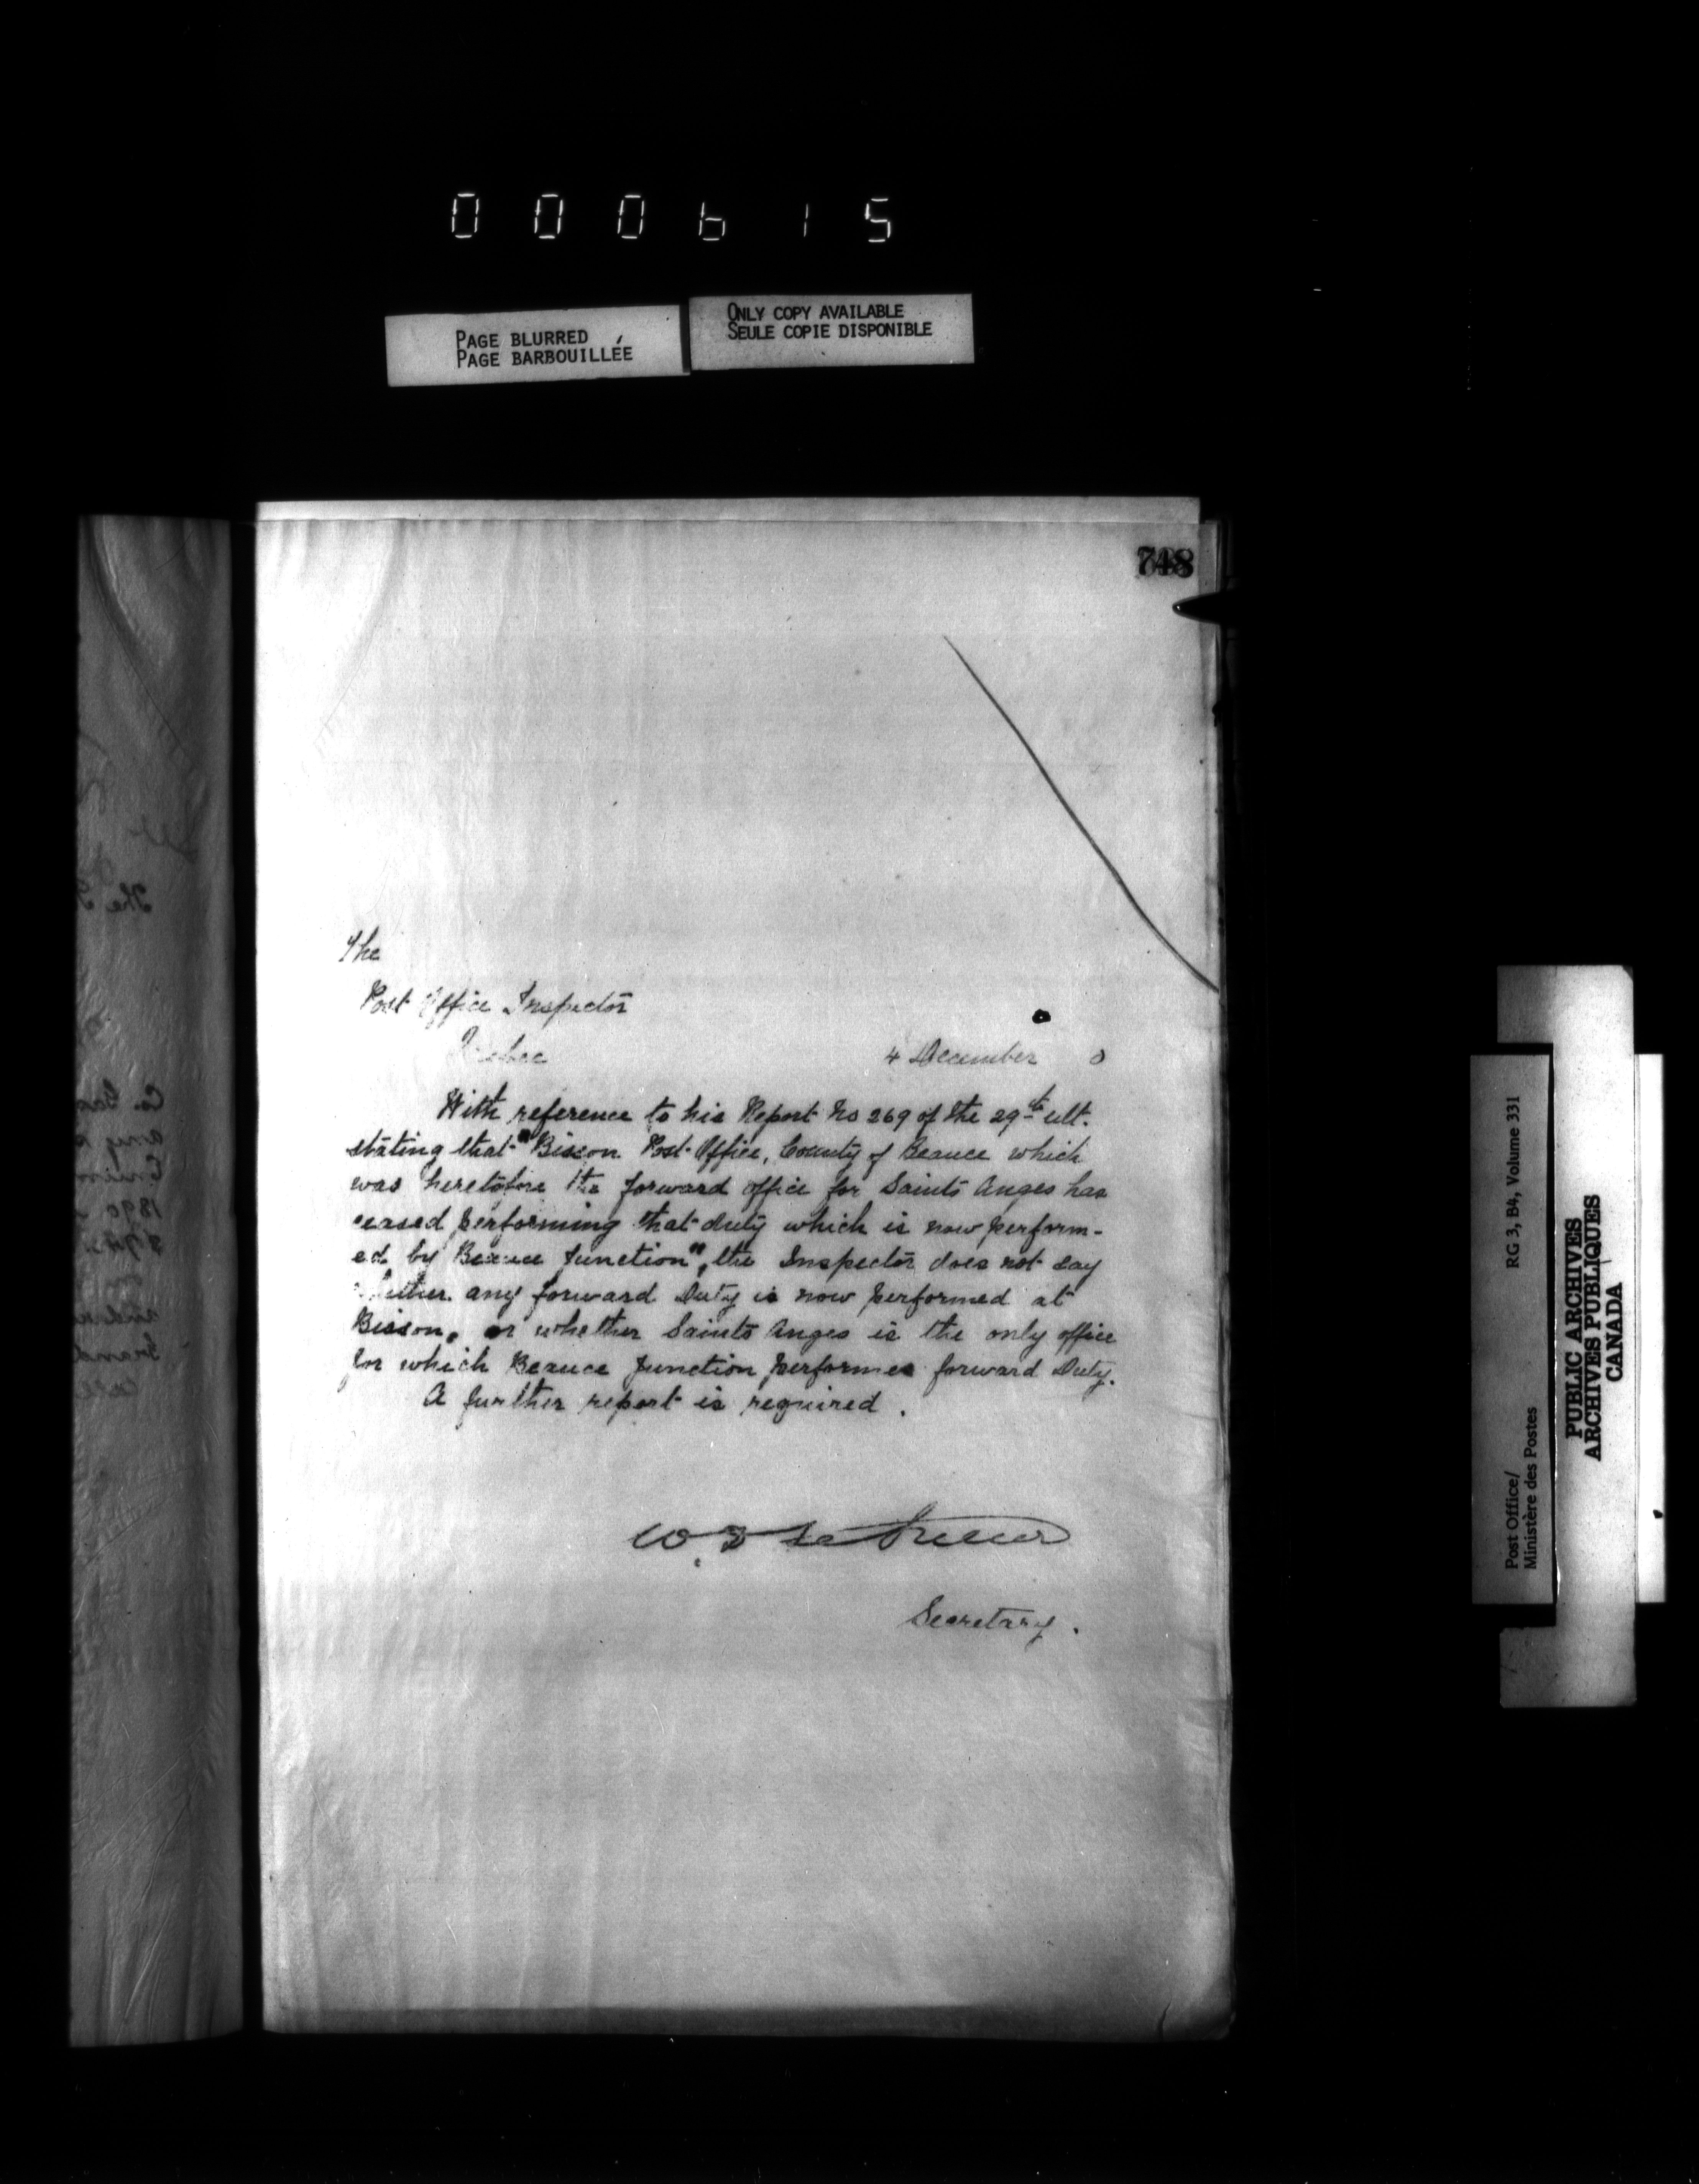 000615
PAGE BLURRED
PAGE BARBOUILLÉE
ONLY COPY AVAILABLE
SEULE COPIE DISPONIBLE
748
The
Post Office Inspector
Quebec
4 December 0
With reference to his Report No 269 of the 29th ult.
stating that "Bisson Post Office, County of Beauce which
was heretofore the forward office for Saints Anges has
ceased performing that duty which is now perform-
ed by Beauce Junction", the Inspector does not say
whether any forward Duty is now performed at
Bisson, or whether Saints Anges is the only office
for which Beauce Junction performes forward Duty.
A further report is required.
W. D. Le Sueur
Secretary.
The
Co.
any
1890
Post Office/
Ministère des Postes
RG 3, B4, Volume 331
PUBLIC ARCHIVES
ARCHIVES PUBLIQUES
CANADA